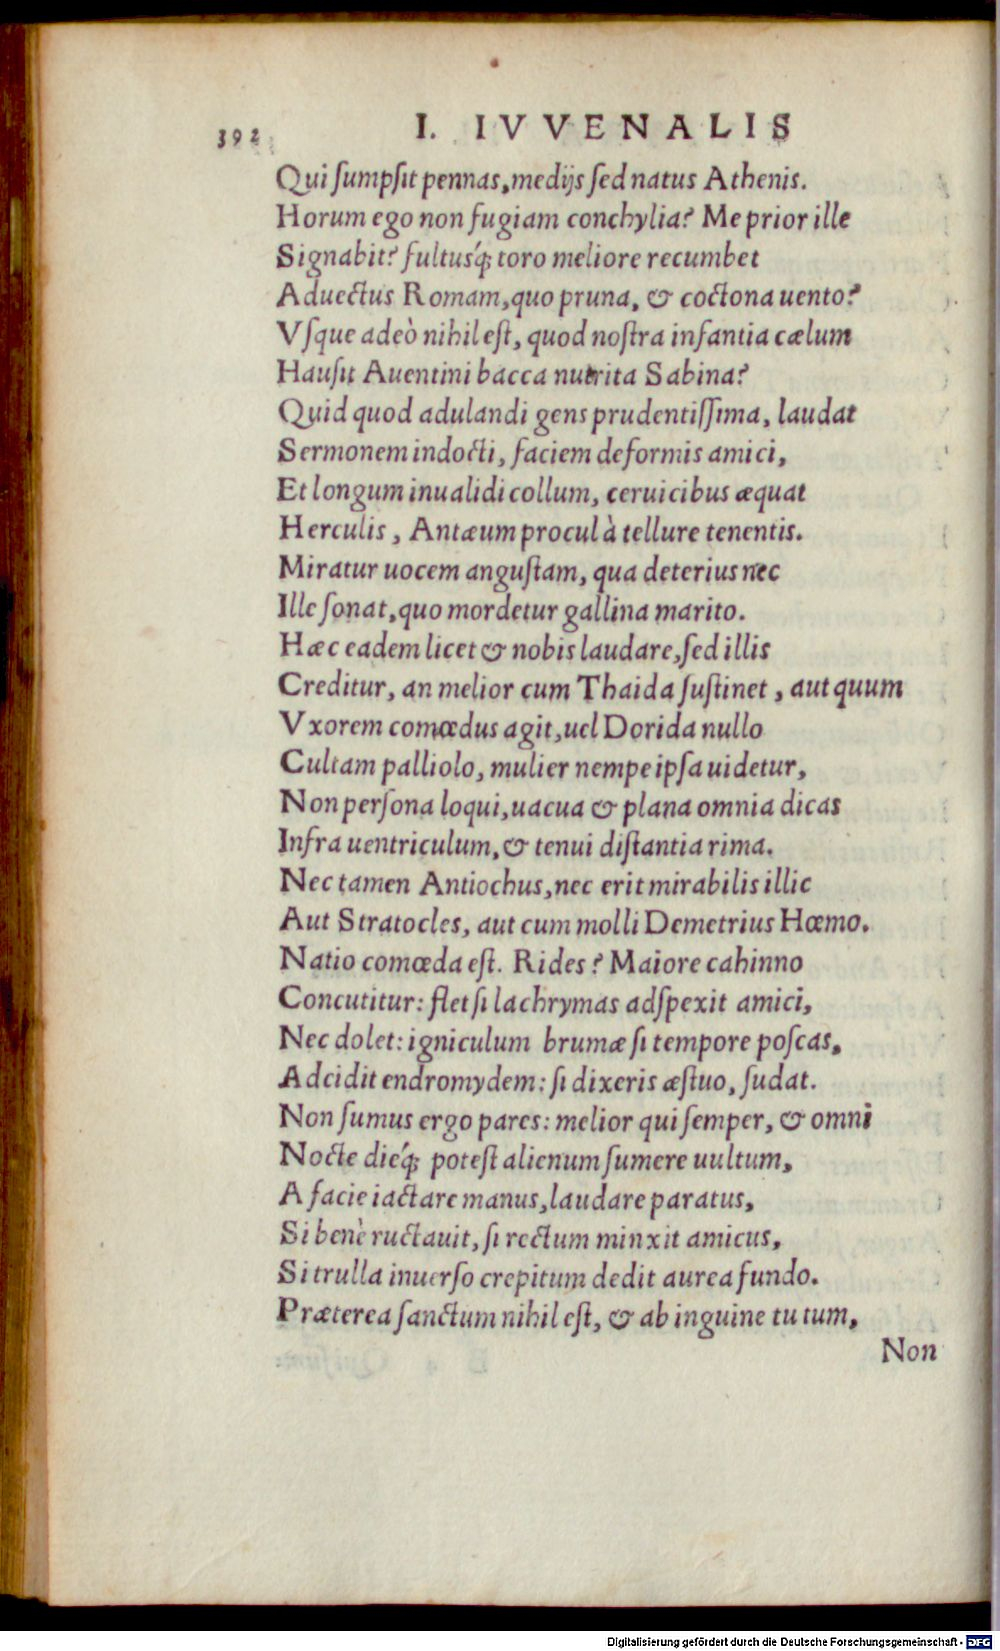 392 I. IVVENALIS
Qui ſumpſit pennas, medijs ſed natus Athenis.
Horum ego non fugiam conchylia? Me prior ille
Signabit? fultusq́; toro meliore recumbet
Aduectus Romam, quo pruna, & coctona uento?
Vſque adeò nihil eſt, quod noſtra infantia cælum
Hauſit Auentini bacca nutrita Sabina?
Quid quod adulandi gens prudentiſſima, laudat
Sermonem indocti, faciem deformis amici,
Et longum inualidi collum, ceruicibus æquat
Herculis, Antæum procul à tellure tenentis.
Miratur uocem anguſtam, qua deterius nec
Ille ſonat, quo mordetur gallina marito.
Hæc eadem licet & nobis laudare, ſed illis
Creditur, an melior cum Thaida ſuſtinet, aut quum
Vxorem comœdus agit, uel Dorida nullo
Cultam palliolo, mulier nempe ipſa uidetur,
Non perſona loqui, uacua & plana omnia dicas
Infra uentriculum, & tenui diſtantia rima.
Nec tamen Antiochus, nec erit mirabilis illic
Aut Stratocles, aut cum molli Demetrius Hœmo.
Natio comœda eſt. Rides? Maiore cahinno
Concutitur: flet ſi lachrymas adſpexit amici,
Nec dolet: igniculum brumæ ſi tempore poſcas,
Adcidit endromydem: ſi dixeris æſtuo, ſudat.
Non ſumus ergo pares: melior qui ſemper, & omni
Nocte dieq́; poteſt alienum ſumere uultum,
A facie iactare manus, laudare paratus,
Si benè ructauit, ſi rectum minxit amicus,
Si trulla inuerſo crepitum dedit aurea fundo.
Præterea ſanctum nihil eſt, & ab inguine tu tum,
Non
Digitalisierung gefördert durch die Deutsche Forschungsgemeinschaft - DFG